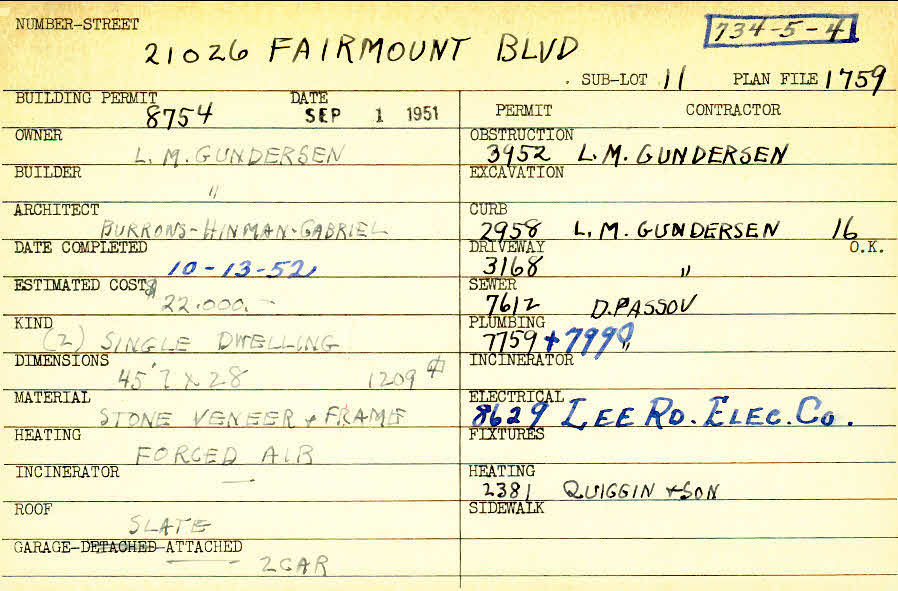 NUMBER-STREET
21026 FAIRMOUNT BLVD
734-5-4
SUB-LOT 11 PLAN FILE 1759
BUILDING PERMIT 8754 DATE SEP 1 1951
PERMIT CONTRACTOR
OWNER L. M. GUNDERSEN
OBSTRUCTION 3952 L. M. GUNDERSEN
BUILDER "
EXCAVATION
ARCHITECT BURROWS-HINMAN-GABRIEL
CURB 2958 L. M. GUNDERSEN 16
DATE COMPLETED 10-13-52
DRIVEWAY 3168 " O.K.
ESTIMATED COST $ 22.000.-
SEWER 7612 D. PASSOV
KIND (2) SINGLE DWELLING
PLUMBING 7759 + 7990 "
DIMENSIONS 45'7 x 28 1209
INCINERATOR
MATERIAL STONE VENEER + FRAME
ELECTRICAL 8629 LEE RD. ELEC. CO.
HEATING FORCED AIR
FIXTURES
INCINERATOR —
HEATING 2381 QUIGGIN + SON
ROOF SLATE
SIDEWALK
GARAGE-DETACHED-ATTACHED 2 CAR